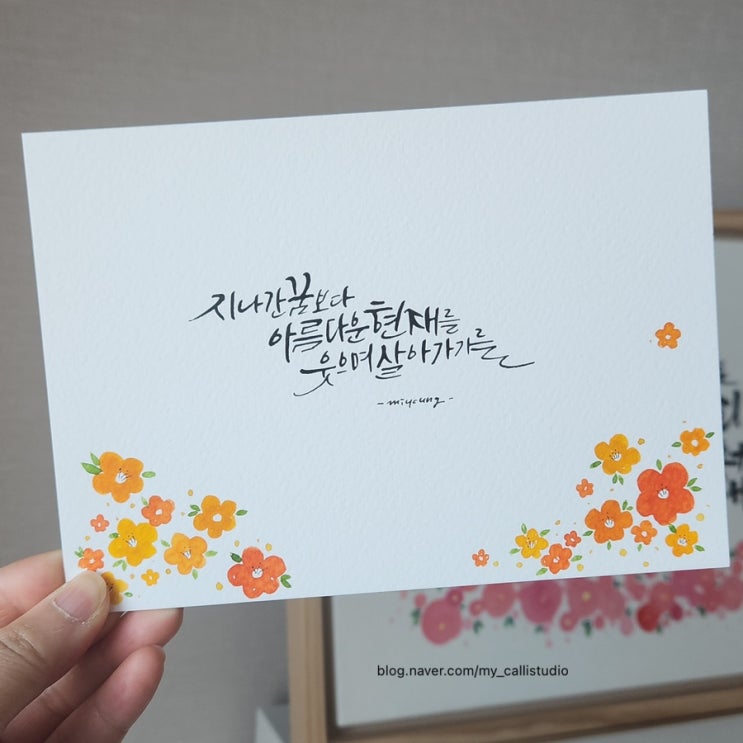 지나간 꿈보다
아름다운 현재를
웃으며 살아가기를
- miyoung -
blog.naver.com/my_callistudio